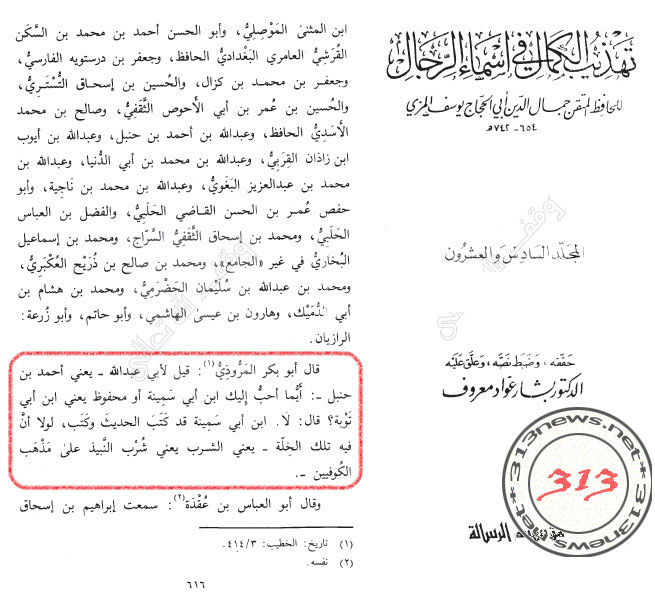 تهذيب الكمال في أسماء الرجال
للحافظ المتقن جمال الدين أبي الحجاج يوسف المزي
٦٥٤ - ٧٤٢ هـ
المجلد السادس والعشرون
حققه، وضبط نصه، وعلق عليه
الدكتور بشار عواد معروف
الرسالة
313news.net
313news.net
313
ابن المثنى المَوْصِليُّ، وأبو الحسن أحمد بن محمد بن السَّكَن
القُرَشيُّ العامري البَغْداديُّ الحافظ، وجعفر بن درستويه الفارسيُّ،
وجعفر بن محمـد بن كزال، والحُسين بن إسحاق التُّسْتَريُّ،
والحُسين بن عُمر بن أبي الأحوص الثَّقَفيُّ، وصالح بن محمد
الأسَديُّ الحافظ، وعبدالله بن أحمد بن حنبل، وعبدالله بن أيوب
ابن زاذان القِرَبيُّ، وعبدالله بن محمد بن أبي الدُّنيا، وعبدالله بن
محمد بن عبدالعزيز البَغَويُّ، وعبدالله بن محمد بن ناجية، وأبو
حفص عُمر بن الحسن القاضي الحَلَبيُّ، والفضل بن العباس
الحَلَبيُّ، ومحمد بن إسحاق الثَّقَفيُّ السَّرّاج، ومحمد بن إسماعيل
البُخاريُّ في غير «الجامع»، ومحمد بن صالح بن ذُرَيح العُكْبَريُّ،
ومحمد بن عبدالله بن سُلَيمان الحَضْرَميُّ، ومحمد بن هشام بن
أبي الدُّمَيْك، وهارون بن عيسى الهاشمي، وأبو حاتم، وأبو زُرعة:
الرازيان.
قال أبو بكر المَرُّوذيُّ(١): قيل لأبي عبدالله ـ يعني أحمد بن
حنبل ـ: أيُّما أحبُّ إليك ابن أبي سَمِينة أو محفوظ يعني ابن أبي
تَوْبة؟ قال: لاَ. ابن أبي سَمِينة قد كتَبَ الحديثَ وكَتَب، لولا أنَّ
فيه تلك الخلّة ـ يعني الشرب يعني شُرْب النَّبيذ على مَذْهَب
الكُوفيين ـ.
وقال أبو العباس بن عُقْدة(٢): سمعت إبراهيم بن إسحاق
(١) تاريخ: الخطيب: ٤١٤/٣.
(٢) نفسه.
٦١٦